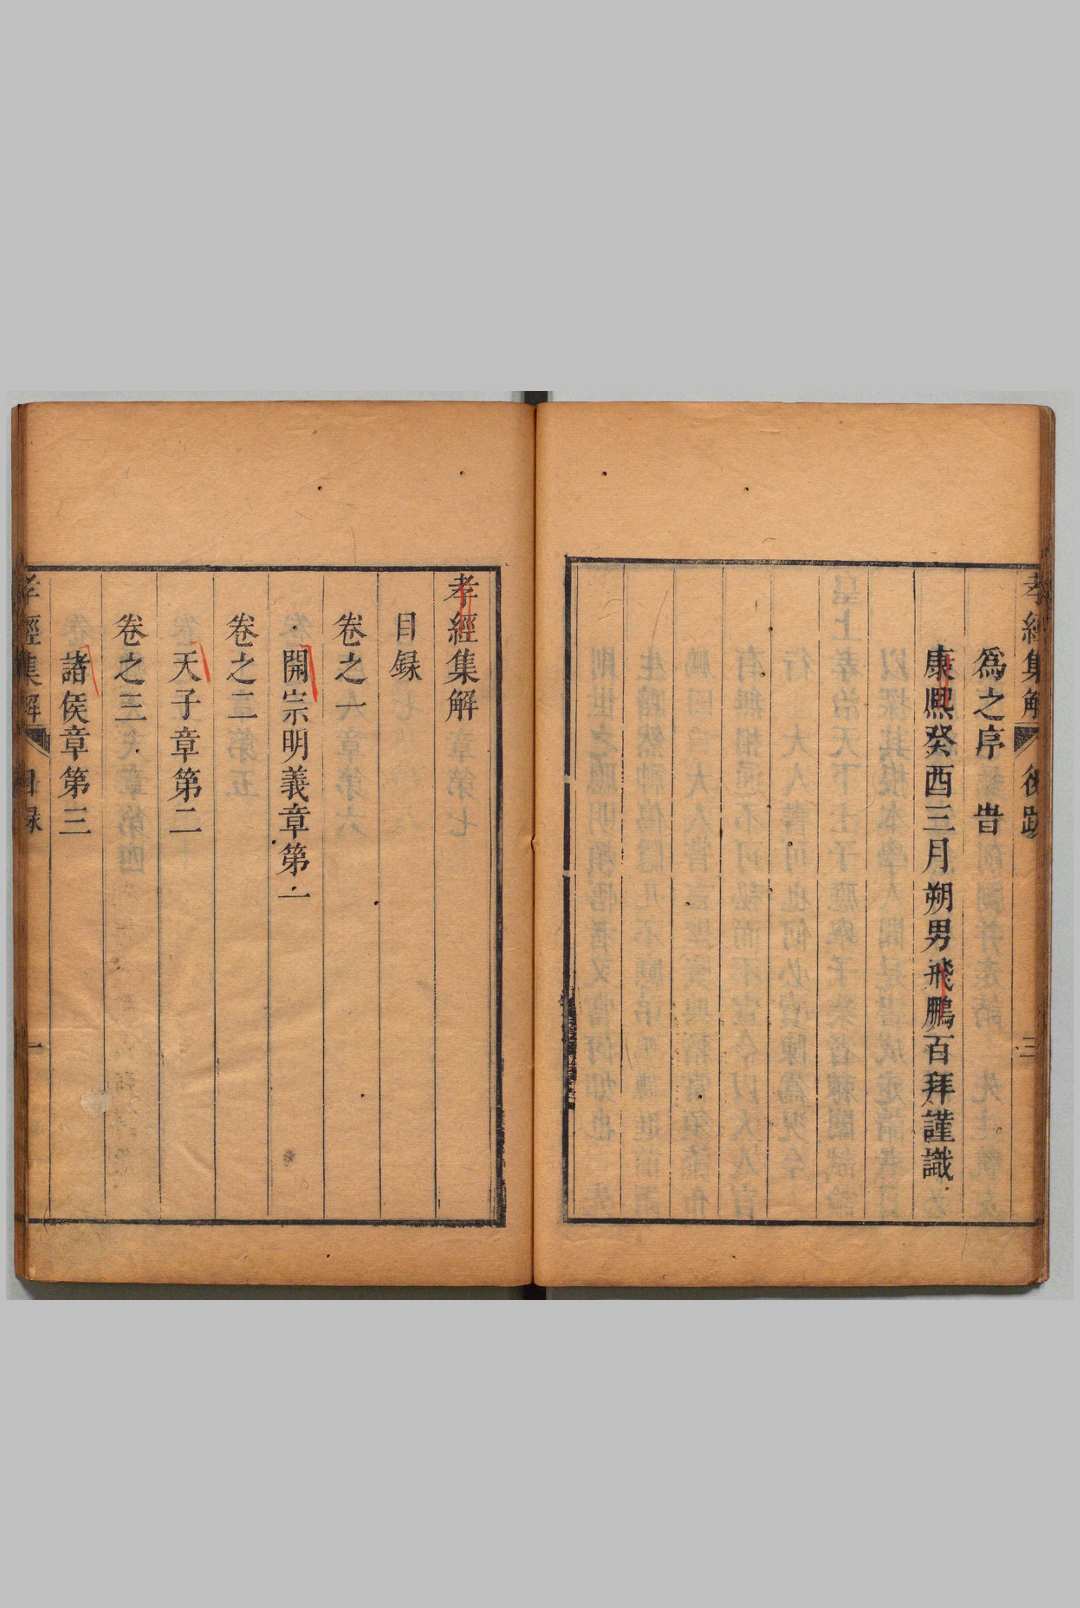 孝經集解 後跋 三
為之序 旹
康熙癸酉三月朔男飛鵬百拜謹識
孝經集解
目録
卷之一
開宗明義章第一
卷之二
天子章第二
卷之三
諸侯章第三
孝經集解 目録 一